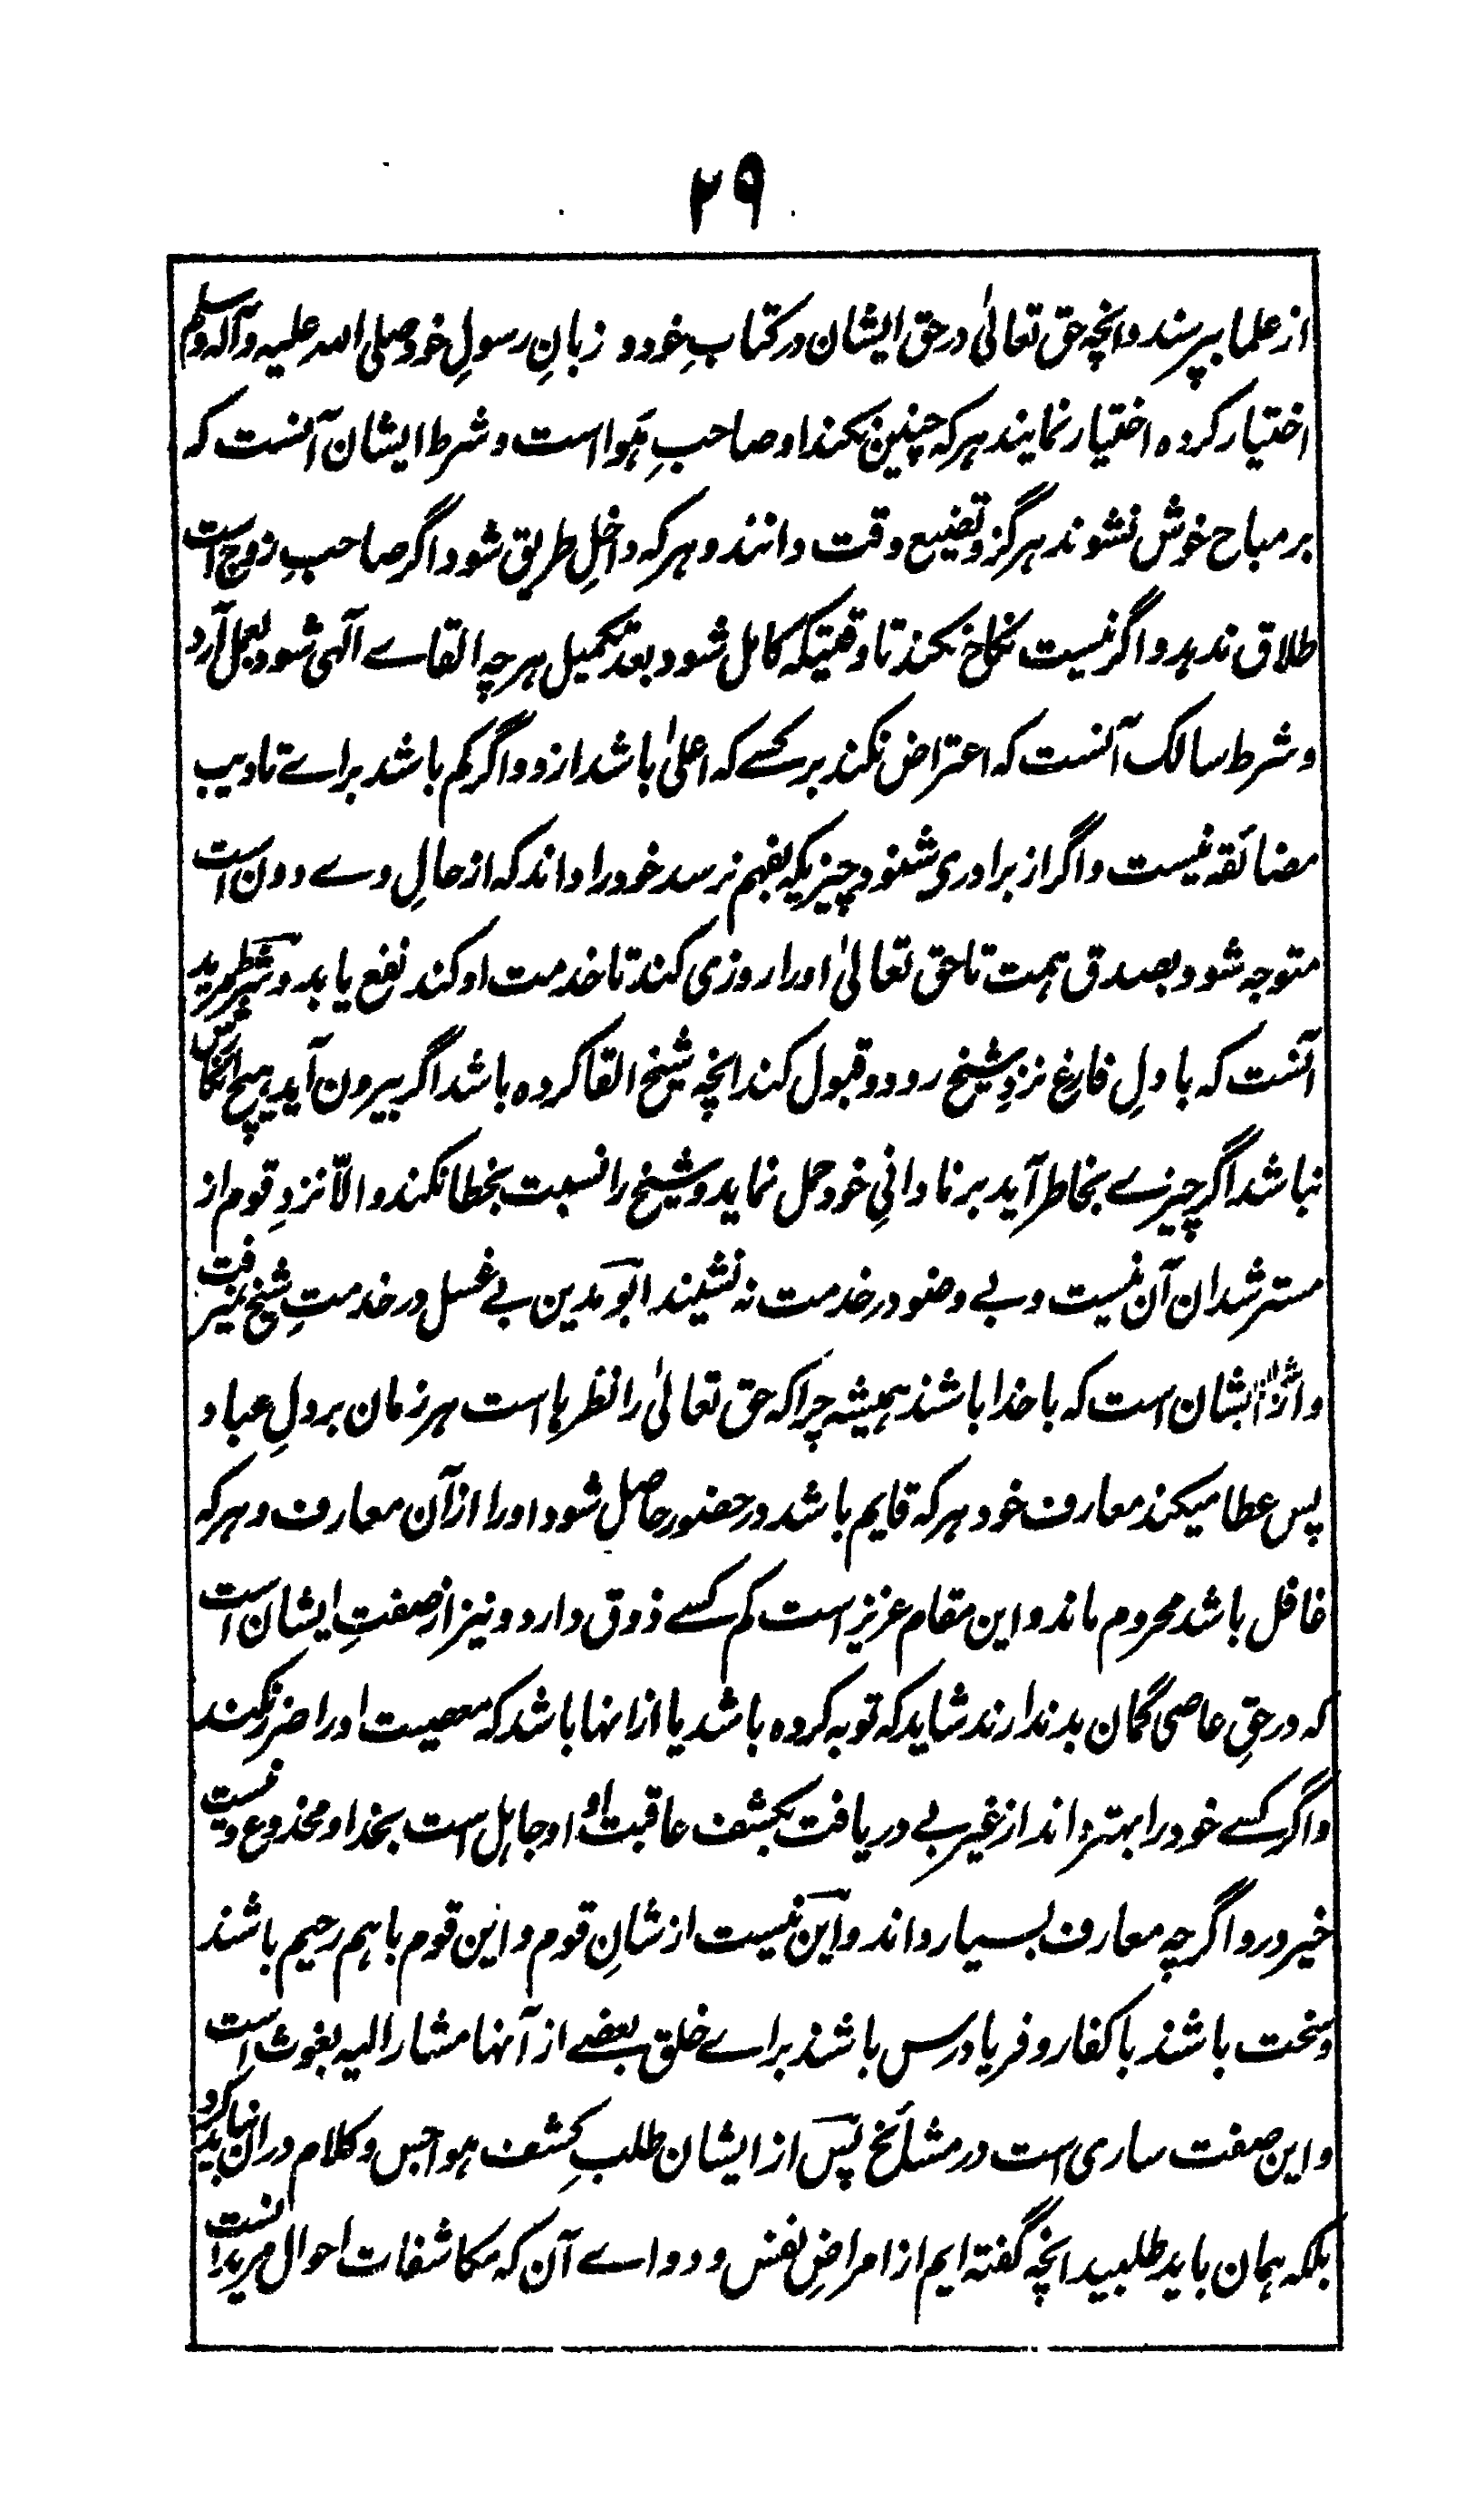 ۲۹
از علما بپرسند و انچه حق تعالیٰ در حق ایشان در کتابِ خود و زبانِ رسولِ خود صلی الله علیه و آله وسلم
اختیار کرده اختیار نمایند هر که چنین نکند او صاحبِ هَوا است و شرط ایشان آنست که
بر مباح خوش نشوند هرگز و تضیع وقت دانند و هر که داخلِ طریق شود اگر صاحبِ زوج است
طلاق ندهد و اگر نیست نکاح نکند تا وقتیکه کامل شود بعد تکمیل هر چه القاے آلهی شود بعمل آرد
و شرط سالک آنست که اعتراض نکند بر کسے که اعلیٰ باشد ازو و اگر کم باشد براے تادیب
مضائقه نیست و اگر از برادری شنود چیزیکه بفهم نرسد خود را داند که از حالِ وے دون است
متوجه شود بصدق همت تا حق تعالیٰ او را روزی کند تا خدمت او کند نفع یابد و شرط مرید
آنست که با دلِ فارغ نزدِ شیخ رود و قبول کند انچه شیخ القا کرده باشد اگر بیرون آید هیچ انکارش
نباشد اگر چیزے بخاطر آید بر نادانیِ خود حمل نماید و شیخ را نسبت بخطا نکند و الّا نزدِ قوم از
مسترشدان آن نیست و بے وضو در خدمت نه نشیند ابو مدین بے غسل در خدمتِ شیخ نمیرفت
و از ایشان است که با خدا باشند همیشه چرا که حق تعالیٰ را نظرها است هر زمان بر دلِ عباد
پس عطا میکند معارف خود هر که قایم باشد در حضور حاصل شود او را از آن معارف و هر که
غافل باشد محروم ماند و این مقام عزیز است کم کسے ذوق دارد و نیز از صفتِ ایشان است
که در حقِ عاصی گمان بد ندارند شاید که توبه کرده باشد یا از انها باشد که معصیت او را ضرر نکند
و اگر کسے خود را بهتر داند از غیر بے دریافت بکشف عاقبت او او جاهل است بخدا و مخدوع و نیست
خیر درو اگر چه معارف بسیار داند و این نیست از شانِ قوم و این قوم باهم رحیم باشند
و سخت باشند با کفار و فریادرس باشند براے خلق بعضے از آنها مشار الیه بغوث است
و این صفت ساری است در مشائخ پس از ایشان طلبِ کشف هواجس و کلام دران نباید کرد
بلکه همان باید طلبید انچه گفته ایم از امراضِ نفس و دواے آن که مکاشفات احوال مریدانست